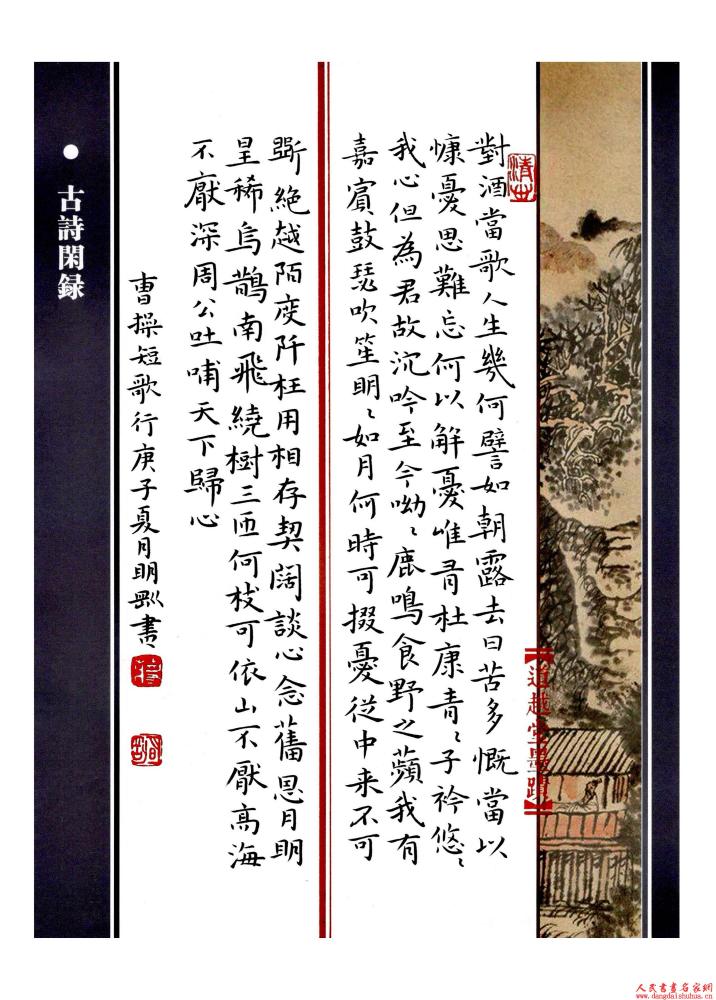 對酒當歌人生幾何譬如朝露去日苦多慨當以
慷憂思難忘何以解憂唯有杜康青、子衿悠、
我心但為君故沉吟至今呦、鹿鳴食野之蘋我有
嘉賓鼓瑟吹笙明、如月何時可掇憂從中来不可
斷絕越陌度阡枉用相存契闊談心念舊恩月明
星稀烏鵲南飛繞樹三匝何枝可依山不厭高海
不厭深周公吐哺天下歸心
曹操短歌行庚子夏月明書
古詩閑録
【道越堂墨蹟】
人民書畫名家網
www.dangdaishuhua.cn